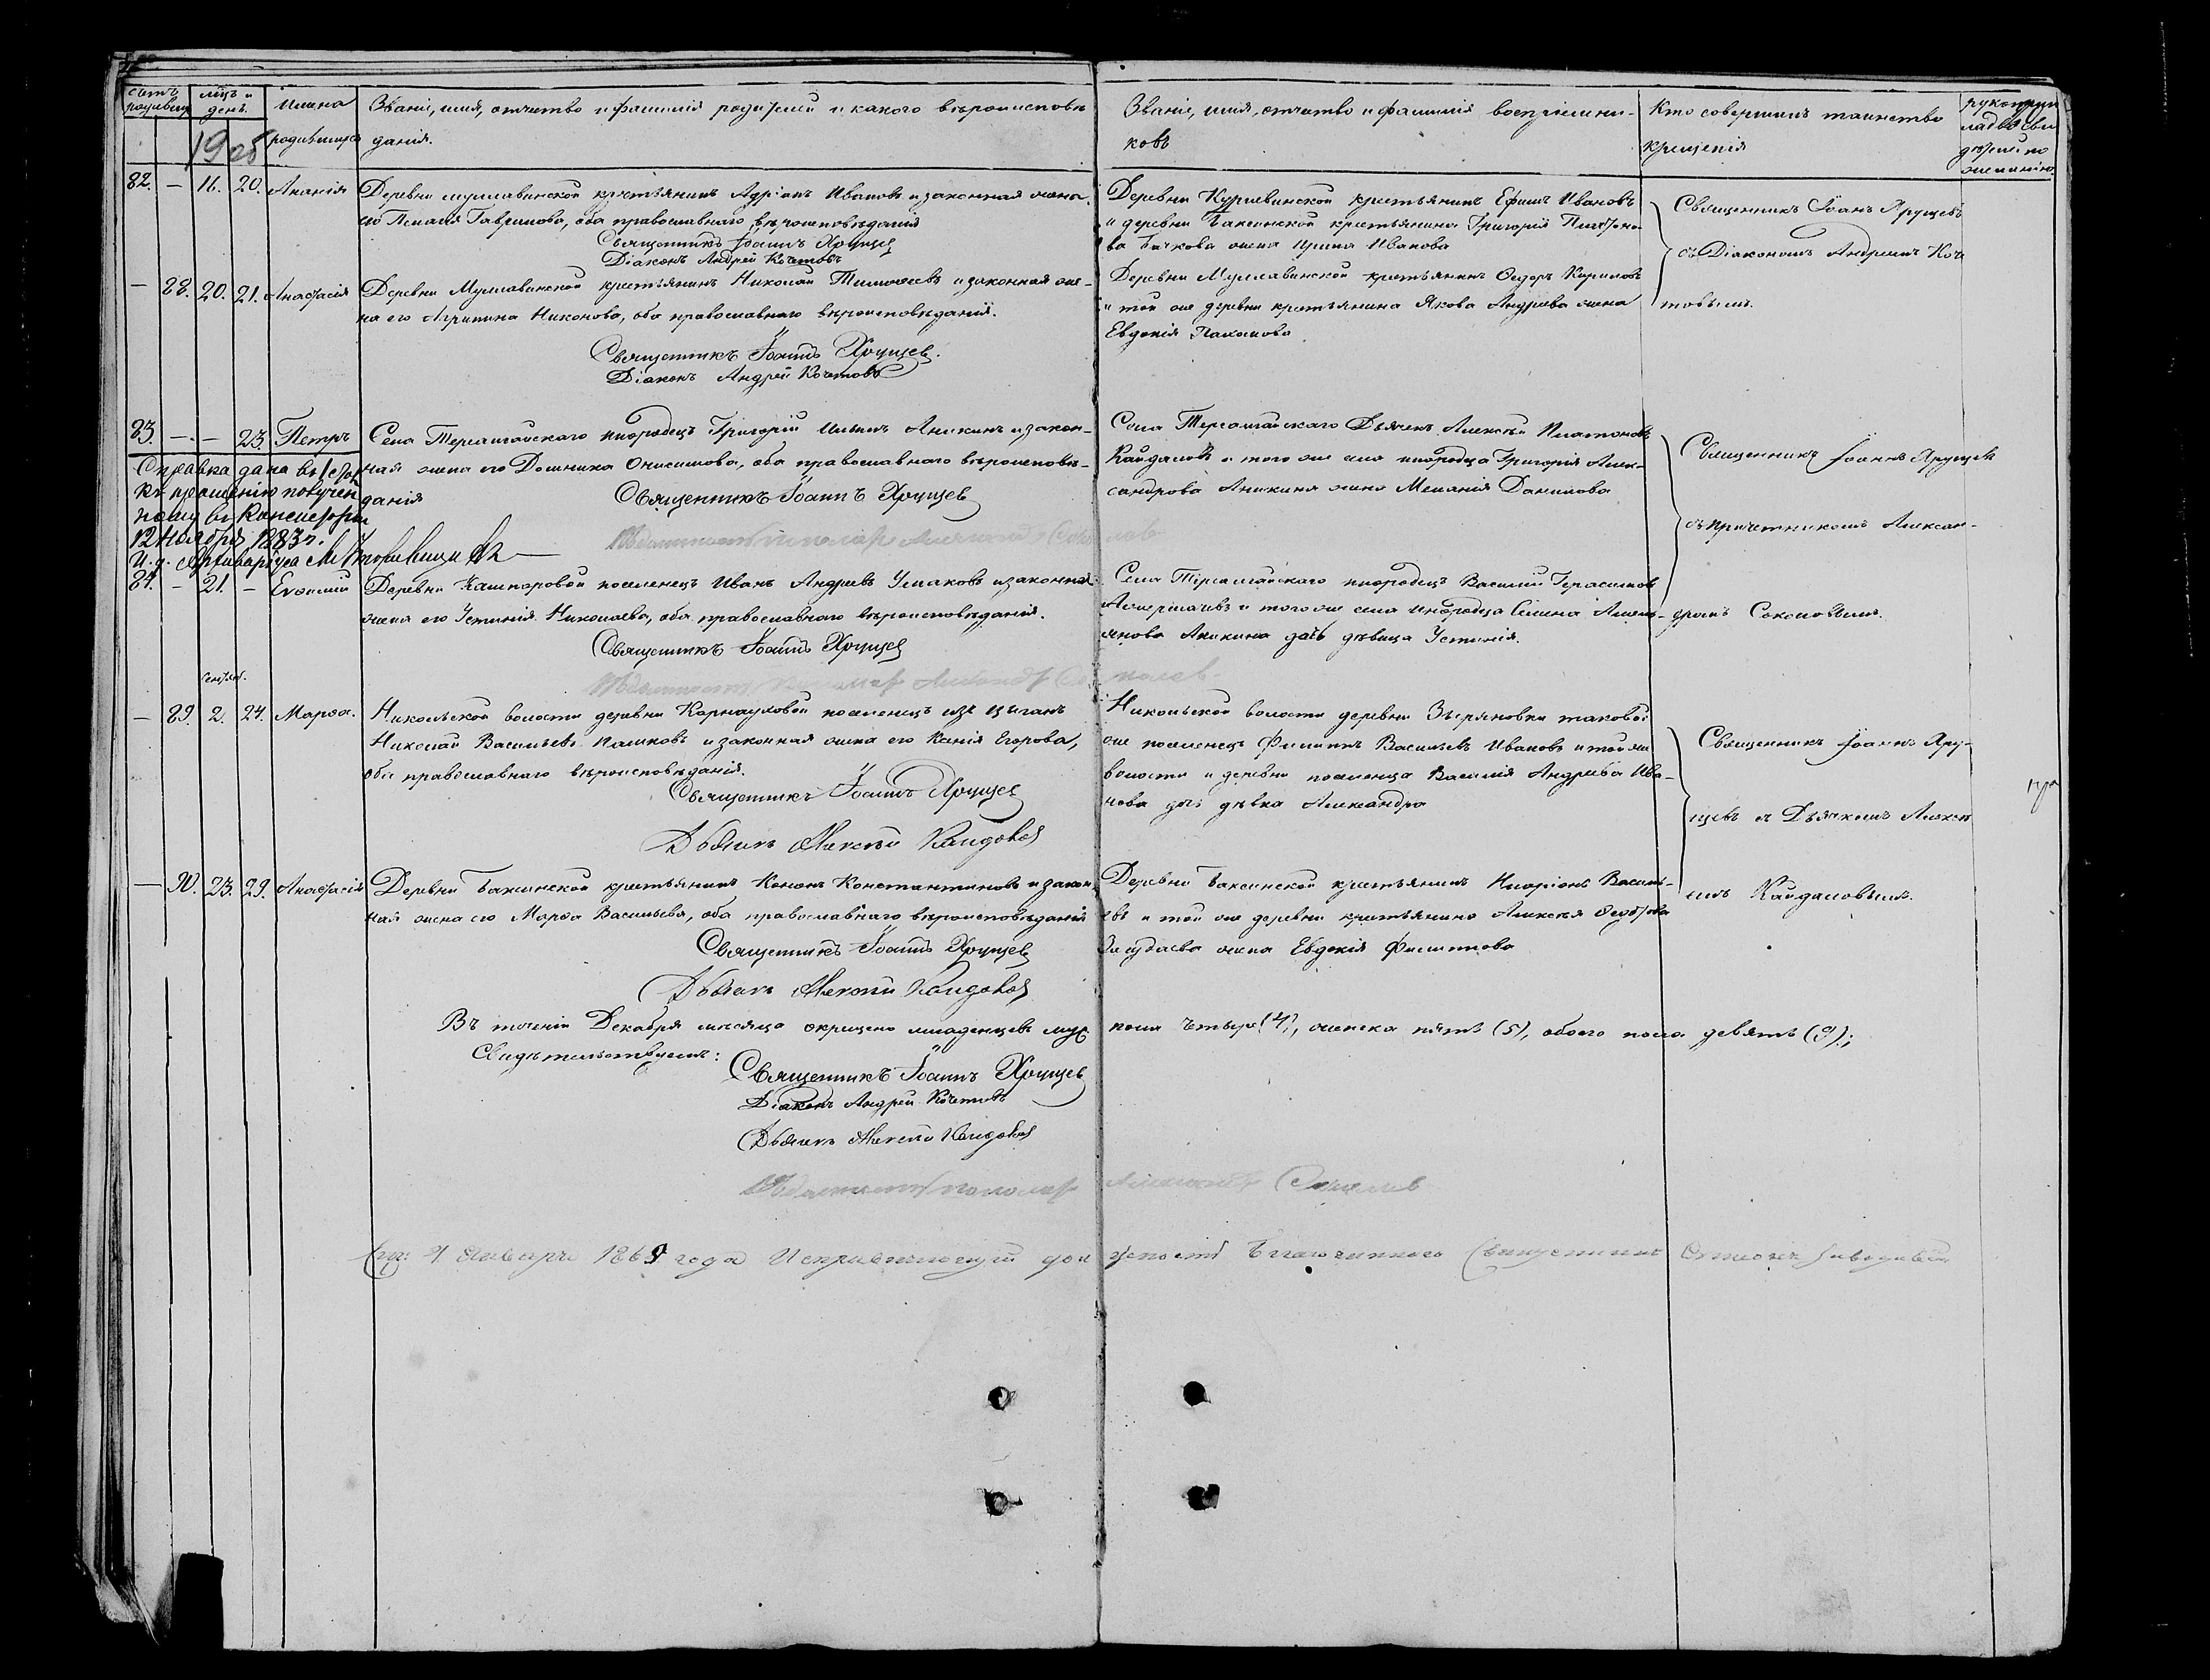 счетъ родивших
мѣцъ и день.
Имена родившихся
Званіе, имя, отчество и фамилія родителей и какого вѣроисповѣ
данія.
Званіе, имя, отчество и фамилія воспріемни-
ковъ
Кто совершилъ таинство
крещенія
190об
82. — 16. 20. Ананія
Деревни Муллавинской крестьянинъ Адріанъ Ивановъ и законная жена
его Пелагія Гаврилова, оба православнаго вѣроисповѣданія
Священникъ Іоаннъ Хрущев
Діаконъ Андрей Кочетовъ
Деревни Курлевинской крестьянинъ Ефимъ Ивановъ
и деревни Баксинской крестьянина Григорія
ва Бачкова жена Ирина Иванова
Священникъ Іоанъ Хрущевъ
съ Діакономъ Андреемъ Коче
товымъ.
— 88. 20. 21. Анастасія
Деревни Муллавинской крестьянинъ Николай Тимофеевъ и законная же-
на его Агрипина Никонова, оба православнаго вѣроисповѣданія.
Священникъ Іоаннъ Хрущев.
Діаконъ Андрей Кочетовъ
Деревни Муллавинской крестьянинъ Ѳедоръ Кириловъ
и той же деревни крестьянина Якова Андреева жена
Евдокія
83. — — 23. Петръ
Села Терсалгайскаго инородецъ Григорій Ильинъ Аникинъ и закон-
ная жена его Домника Онисимова, оба православнаго вѣроисповѣ-
данія
Священникъ Іоаннъ Хрущев
Села Терсалгайскаго Дьячекъ Алексѣй Платоновъ
Кайдаловъ и того же села инородца Григорія Алек-
сандрова Аникина жена Меланія Данилова
Священникъ Іоаннъ Хрущевъ
съ причетникомъ Алексан-
дромъ Соколовымъ.
Справка дана въ
къ прошенію получен
ному въ Консисторіи
12 Ноября 1883 г.
И. д. Архиваріуса
84. — 21. — Евгений
Деревни Кашпоровой поселенецъ Иванъ Андреевъ Ушаковъ и законная
жена его Устинія Николаева, оба православнаго вѣроисповѣданія.
Священникъ Іоаннъ Хрущев
Села Терсалгайскаго инородецъ Василій Герасимов
и того же села инородца Емельянова
Аникина дочь дѣвица Устинія.
— 89. 2. 24. Марѳа.
Никольской волости деревни Карнауховой поселенецъ изъ цыганъ
Николай Васильевъ Калиновъ и законная жена его Ксенія Егорова,
оба православнаго вѣроисповѣданія.
Священникъ Іоаннъ Хрущев
Дьячекъ Алексѣй Кайдалов
Никольской волости деревни Зыряновки таковой
же поселенецъ Филиппъ Васильевъ Ивановъ и той же
волости и деревни поселенца Василія Андреева Ива-
нова дочь дѣвка Александра
Священникъ Іоаннъ Хру-
щевъ съ Дьячкомъ Алексѣ
емъ Кайдаловымъ.
— 90. 23. 29. Анастасія
Деревни Баксинской крестьянинъ Кононъ Константиновъ и закон
ная жена его Марѳа Васильева, оба православнаго вѣроисповѣданія
Священникъ Іоаннъ Хрущев
Дьячекъ Алексѣй Кайдалов
Деревни Баксинской крестьянинъ Иларіонъ Василь-
евъ и той же деревни крестьянина Алексѣя Ѳедорова
жена Евдокія Филиппова
Въ теченіи Декабря мѣсяца окрещено младенцевъ муж. пола четыре (4), женска пять (5), обоего пола девять (9).;
Свидѣтельствуемъ:
Священникъ Іоаннъ Хрущев
Діаконъ Андрей Кочетовъ
Дьячекъ Алексѣй Кайдалов
9 Января 1869 года Исправляющій должность Благочиннаго Священникъ